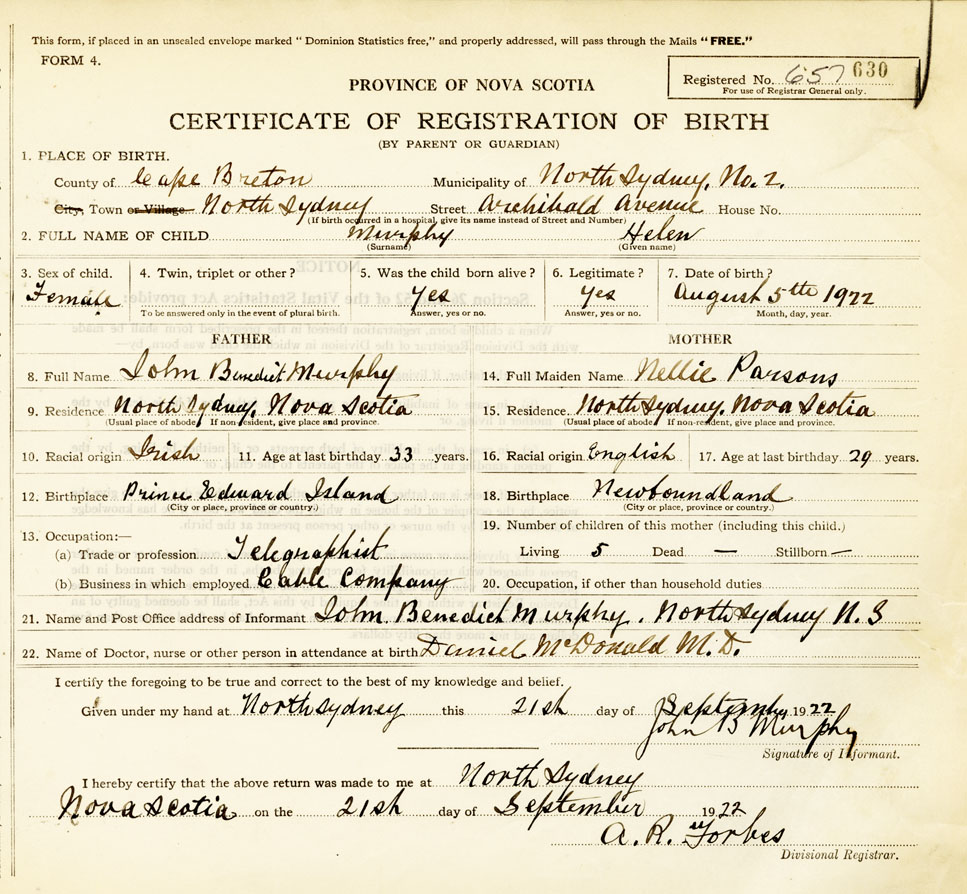 This form, if placed in an unsealed envelope marked “Dominion Statistics free,” and properly addressed, will pass through the Mails “FREE.”
FORM 4.
Registered No. 657 630
For use of Registrar General only.
PROVINCE OF NOVA SCOTIA
CERTIFICATE OF REGISTRATION OF BIRTH
(BY PARENT OR GUARDIAN)
1. PLACE OF BIRTH.
County of Cape Breton Municipality of North Sydney, No. 2.
City, Town or Village North Sydney Street Archibald Avenue House No.
(If birth occurred in a hospital, give its name instead of Street and Number)
2. FULL NAME OF CHILD Murphy Helen
(Surname) (Given name)
3. Sex of child. 4. Twin, triplet or other? 5. Was the child born alive? 6. Legitimate? 7. Date of birth?
Female Yes Yes August 5th 1922
To be answered only in the event of plural birth. Answer, yes or no. Answer, yes or no. Month, day, year.
FATHER MOTHER
8. Full Name John Benedict Murphy 14. Full Maiden Name Nellie Parsons
9. Residence North Sydney, Nova Scotia 15. Residence. North Sydney. Nova Scotia
(Usual place of abode) If non-resident, give place and province. (Usual place of abode) If non-resident, give place and province.
10. Racial origin Irish 11. Age at last birthday 33 years. 16. Racial origin English 17. Age at last birthday 29 years.
12. Birthplace Prince Edward Island 18. Birthplace Newfoundland
(City or place, province or country.) (City or place, province or country.)
13. Occupation:— 19. Number of children of this mother (including this child.)
(a) Trade or profession Telegraphist Living 5 Dead — Stillborn —
(b) Business in which employed Cable Company 20. Occupation, if other than household duties
21. Name and Post Office address of Informant John Benedict Murphy. North Sydney N. S
22. Name of Doctor, nurse or other person in attendance at birth Daniel McDonald M. D.
I certify the foregoing to be true and correct to the best of my knowledge and belief.
Given under my hand at North Sydney this 21st day of September 1922
John B Murphy
Signature of Informant.
I hereby certify that the above return was made to me at North Sydney
Nova Scotia on the 21st day of September 1922
A. R. Forbes
Divisional Registrar.